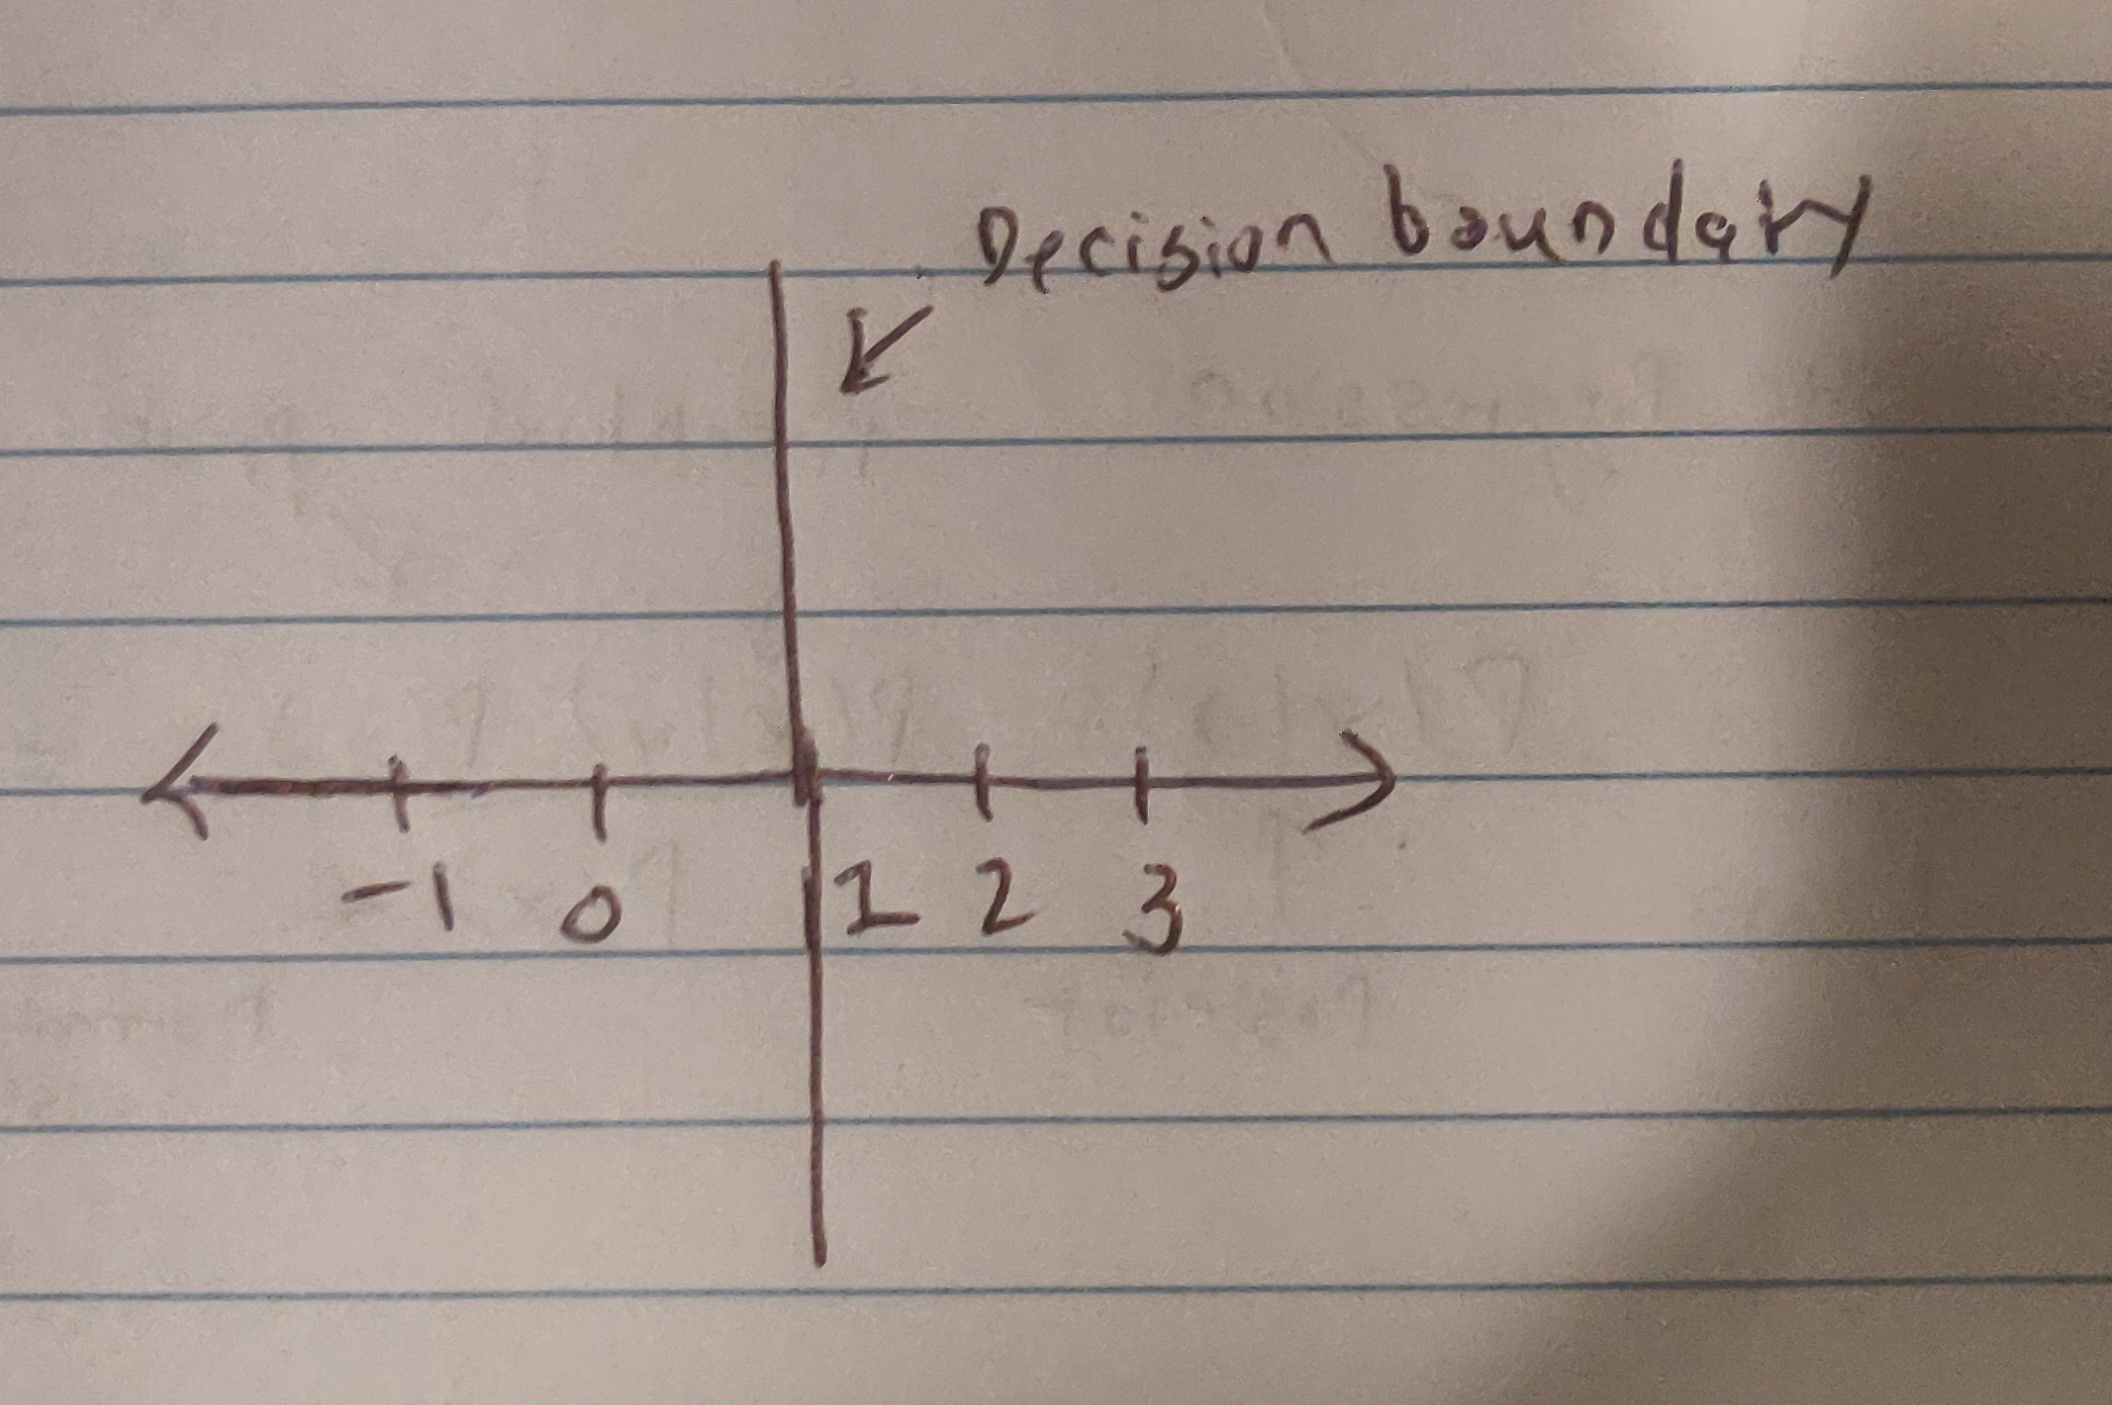 Decision boundary
-1 0 1 2 3